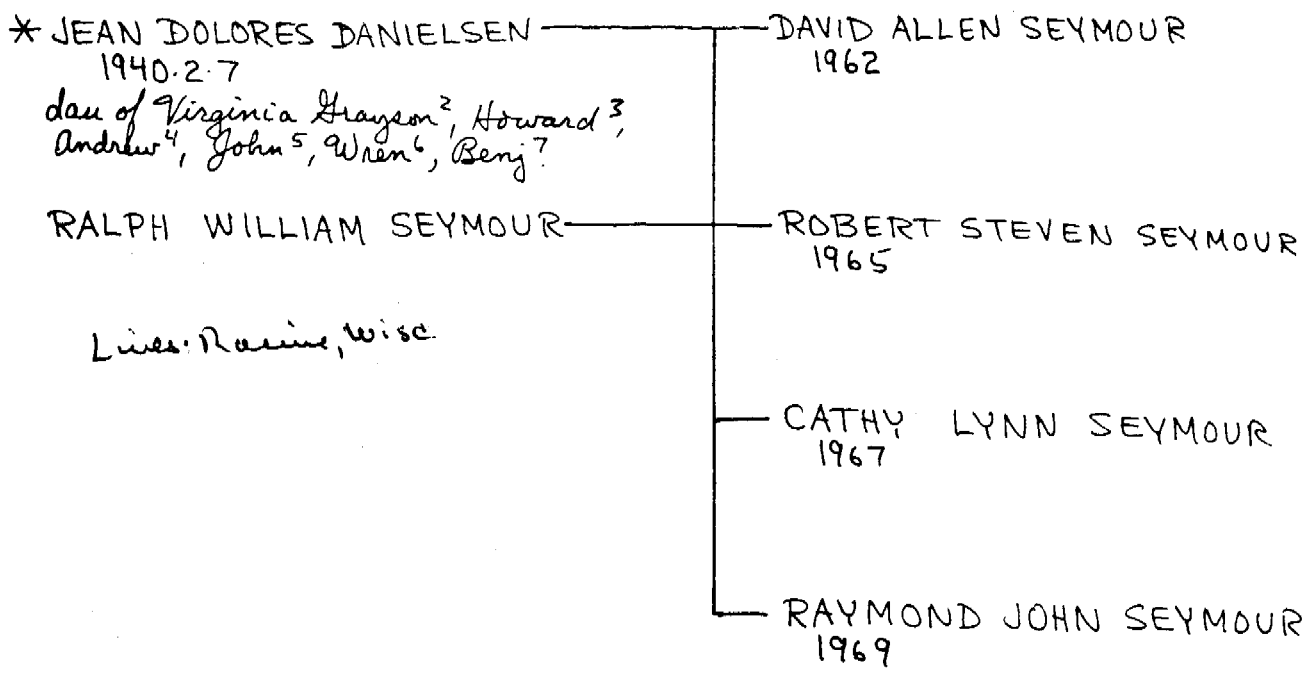 * JEAN DOLORES DANIELSEN
1940.2.7
dau of Virginia Grayson², Howard³,
Andrew⁴, John⁵, Wren⁶, Benj⁷
RALPH WILLIAM SEYMOUR
Lives: Racine, Wisc.
DAVID ALLEN SEYMOUR
1962
ROBERT STEVEN SEYMOUR
1965
CATHY LYNN SEYMOUR
1967
RAYMOND JOHN SEYMOUR
1969